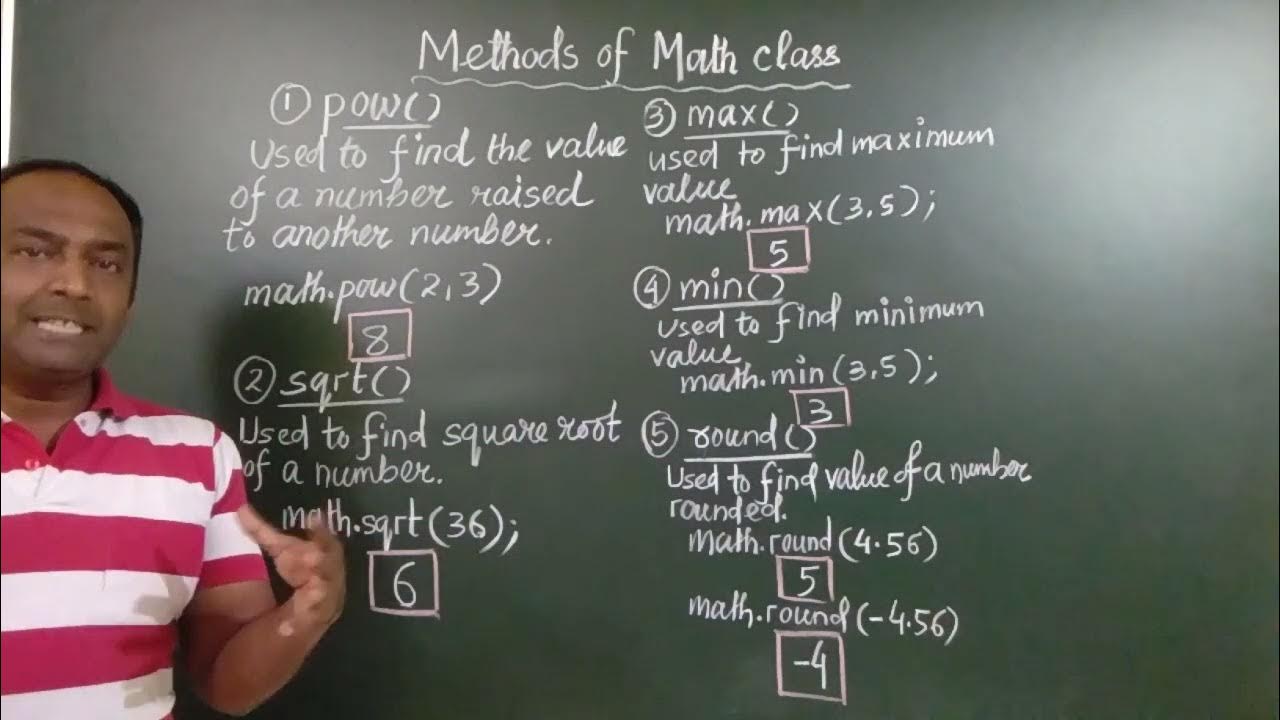 Methods of Math class
① pow()
Used to find the value
of a number raised
to another number.
math.pow(2,3)
8
② sqrt()
Used to find square root
of a number.
math.sqrt(36);
6
③ max()
used to find maximum
value
math.max(3,5);
5
④ min()
Used to find minimum
value.
math.min(3,5);
3
⑤ round()
Used to find value of a number
rounded.
math.round(4.56)
5
math.round(-4.56)
-4